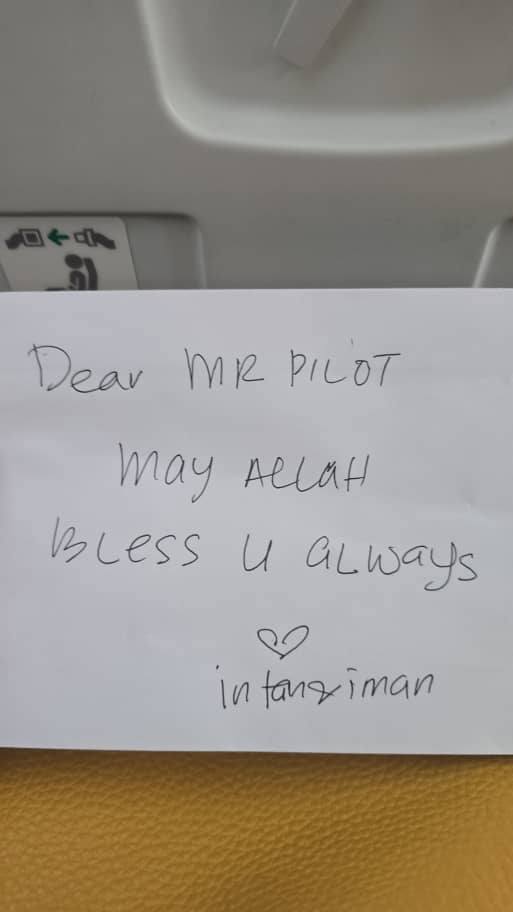 Dear MR PILOT
May ALLAH
BLESS U ALWAYS
intan & iman